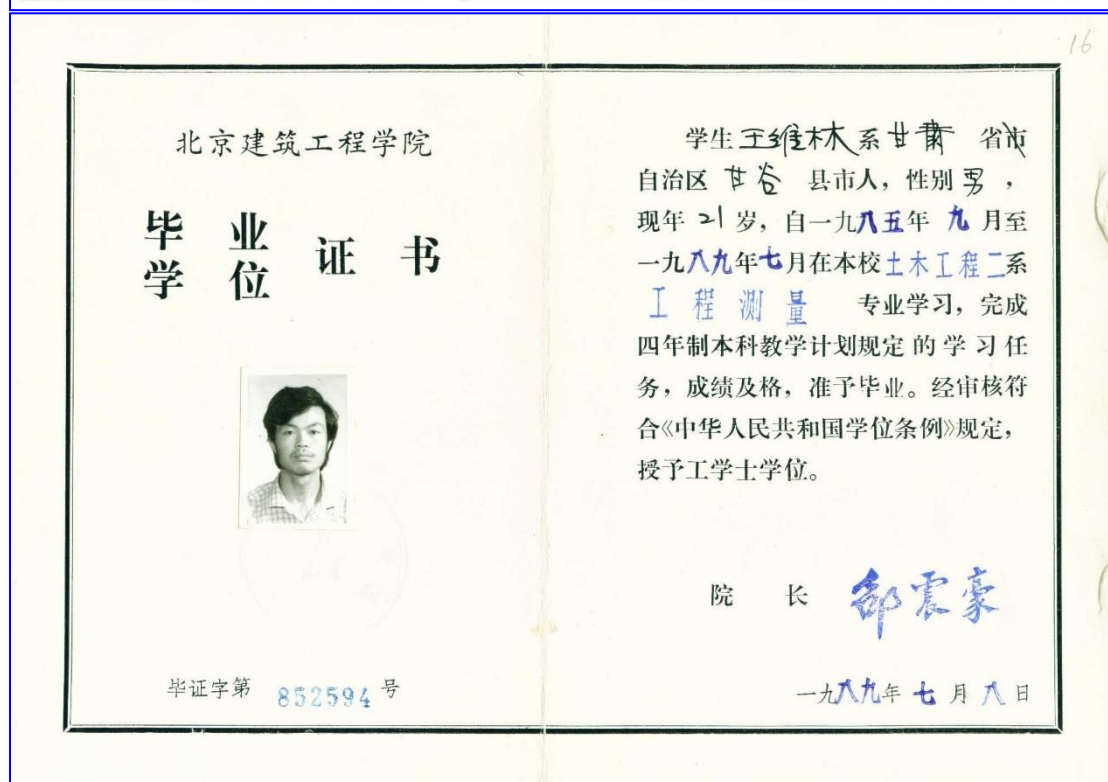 16
北京建筑工程学院
毕业
学位
证书
毕证字第 852594 号
学生 王维林 系甘肃 省市
自治区 甘谷 县市人，性别 男，
现年 21 岁，自一九八五年 九 月至
一九八九年七月在本校土木工程二系
工程测量 专业学习，完成
四年制本科教学计划规定的学习任
务，成绩及格，准予毕业。经审核符
合《中华人民共和国学位条例》规定，
授予工学士学位。
院 长 邹震豪
一九八九年 七 月 八 日